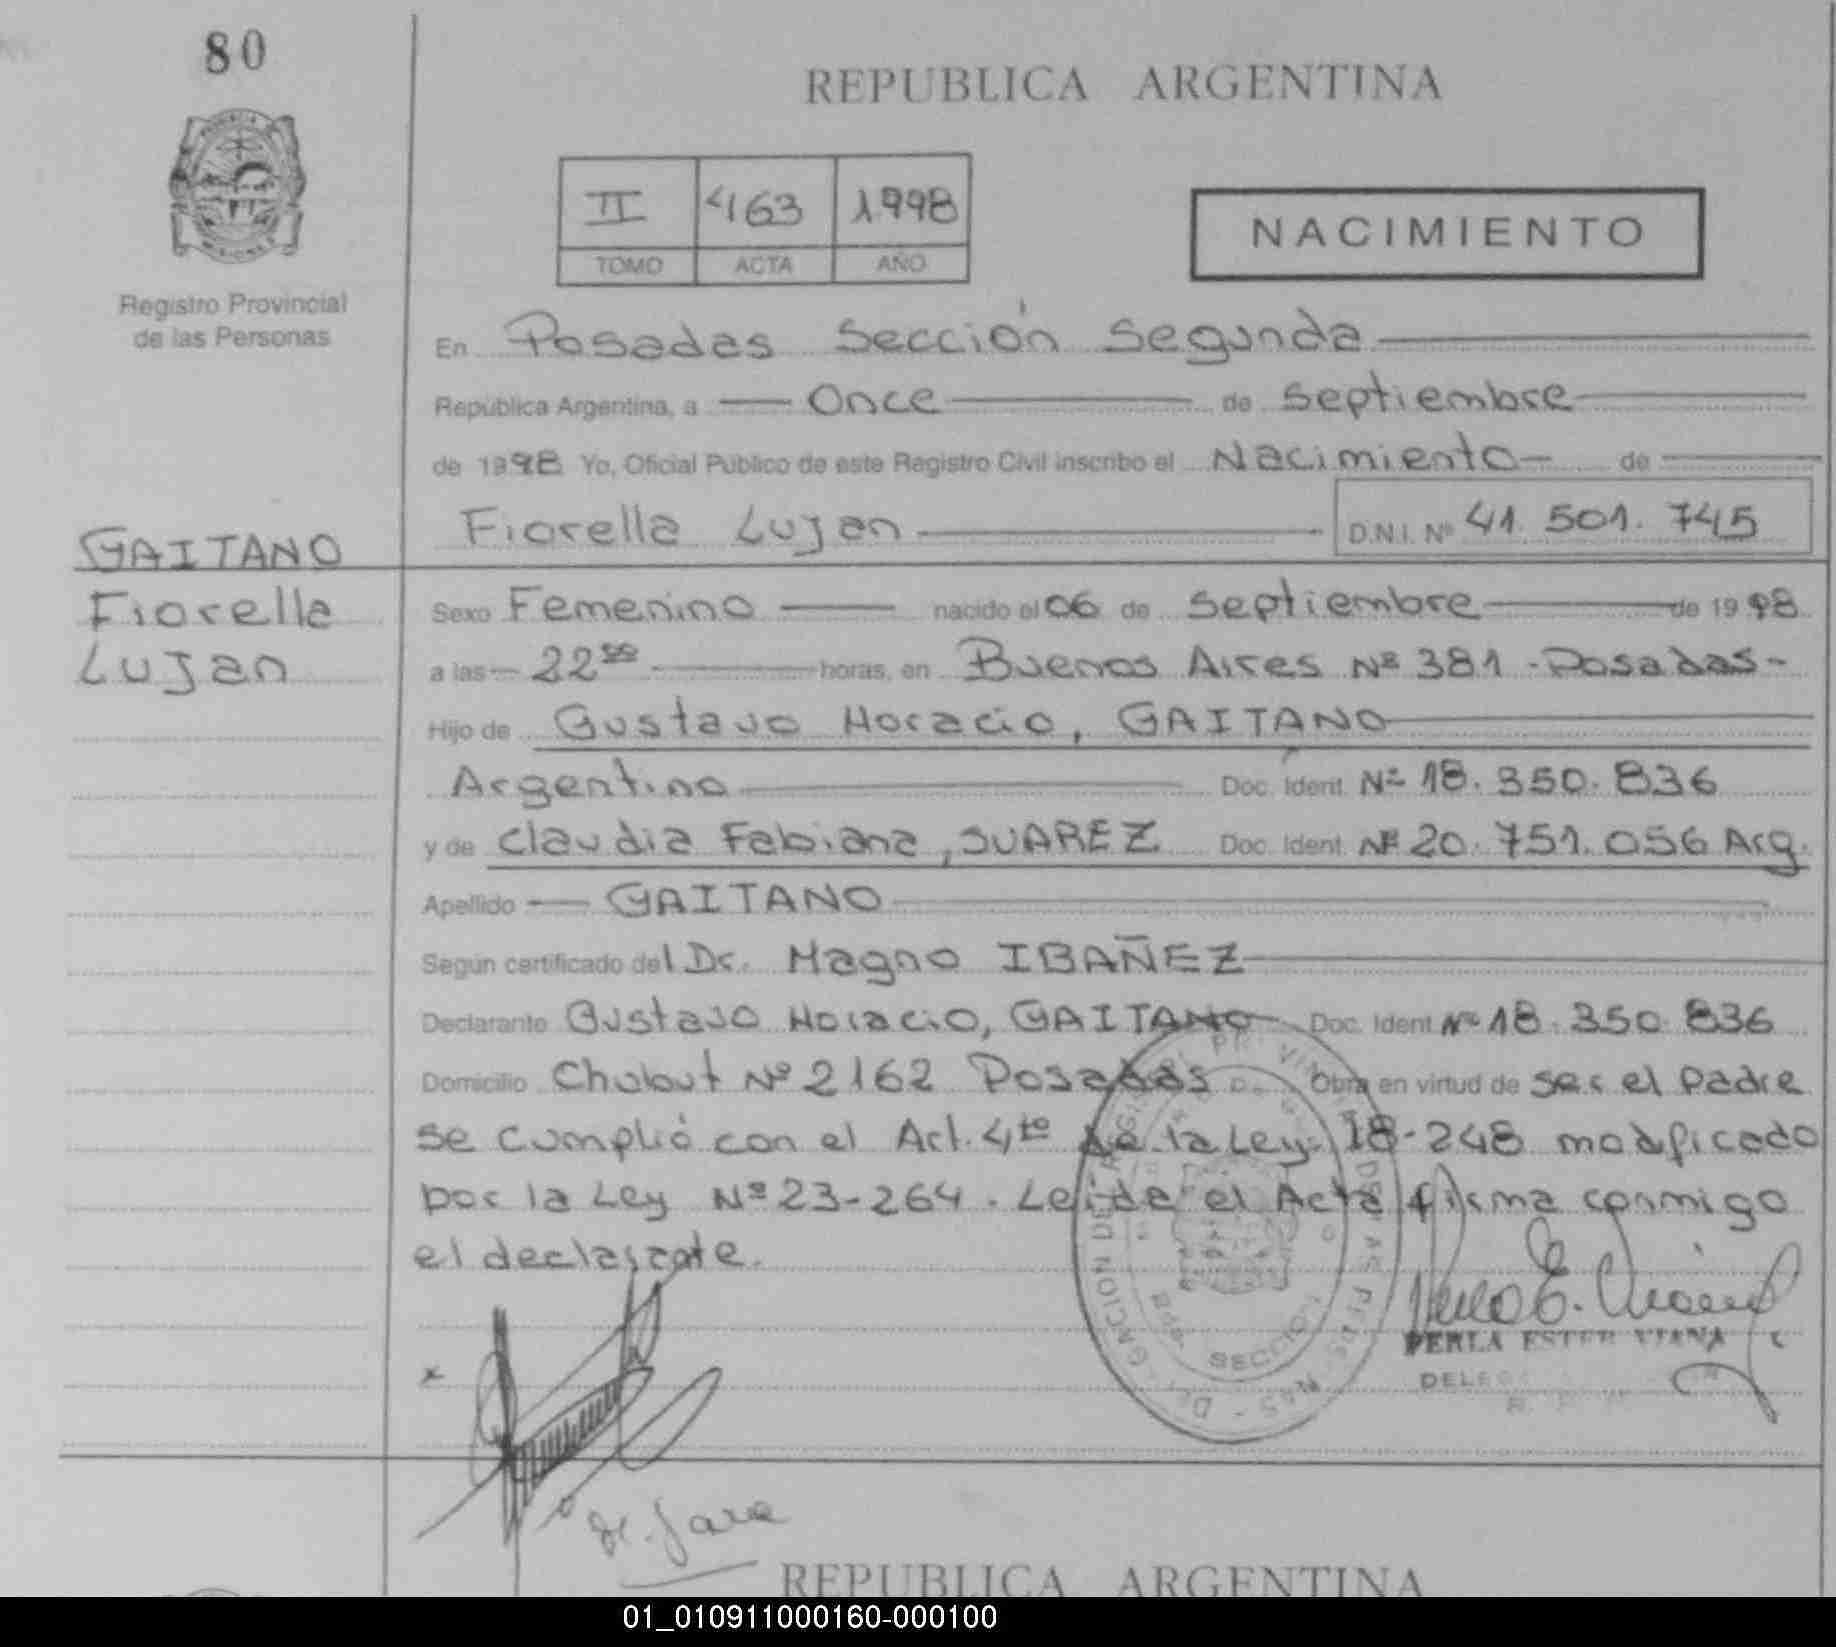 80
REPUBLICA ARGENTINA
II 463 1998
TOMO ACTA AÑO
NACIMIENTO
MISIONES
Registro Provincial
de las Personas
En Posadas Sección Segunda
República Argentina, a Once de Septiembre
de 1998 Yo, Oficial Público de este Registro Civil inscribo el Nacimiento de
Fiorella Lujan D.N.I. Nº 41.501.745
GAITANO
Fiorella
Lujan
Sexo Femenino nacido el 06 de Septiembre de 1998
a las 22 horas, en Buenos Aires Nº 381 - Posadas -
Hijo de Gustavo Horacio, GAITANO
Argentino Doc. Ident. Nº 18.350.836
y de Claudia Fabiana, SUAREZ Doc. Ident. Nº 20.751.056 Arg.
Apellido GAITANO
Según certificado del Dr. Magno IBAÑEZ
Declarante Gustavo Horacio, GAITANO Doc. Ident. Nº 18.350.836
Domicilio Chubut Nº 2162 Posadas Obra en virtud de ser el padre
se cumplió con el Art. 4to de la Ley 18-248 modificado
por la Ley Nº 23-264. Leída el Acta firma conmigo
el declarante.
PERLA ESTER VIANA
SECCION
REPUBLICA ARGENTINA
01_010911000160-000100